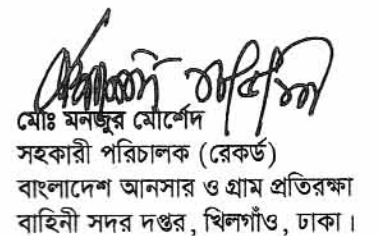 মোঃ মনজুর মোর্শেদ
সহকারী পরিচালক (রেকর্ড)
বাংলাদেশ আনসার ও গ্রাম প্রতিরক্ষা
বাহিনী সদর দপ্তর, খিলগাঁও, ঢাকা।